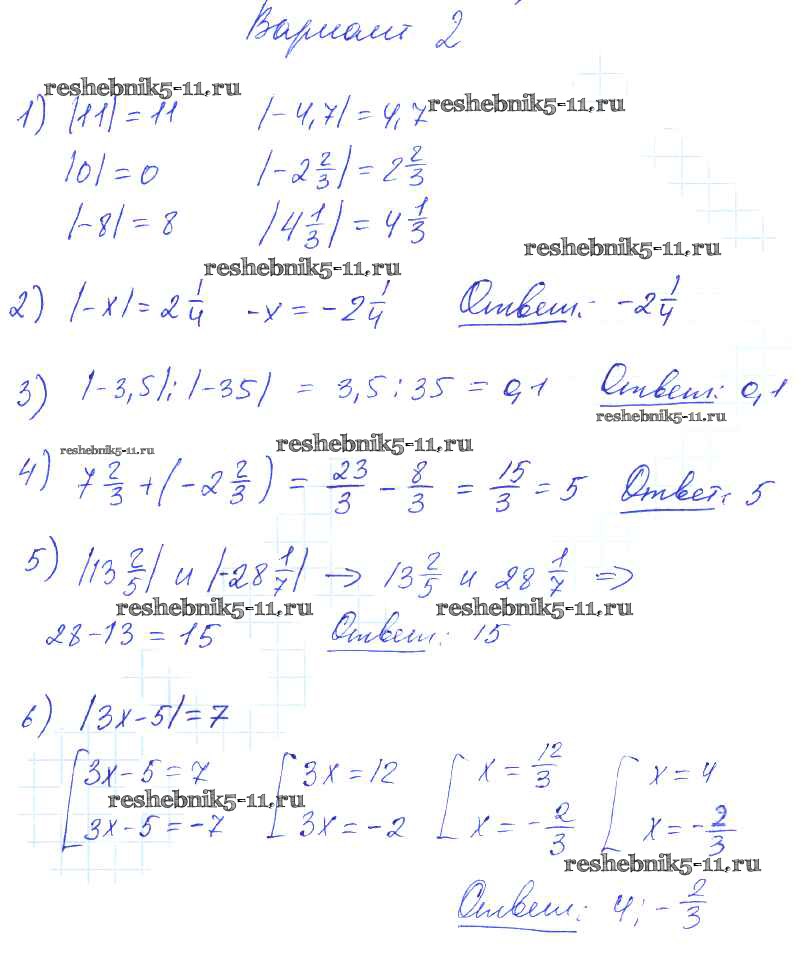 Вариант 2
reshebnik5-11.ru
1) |11| = 11 |-4,7| = 4,7
reshebnik5-11.ru
|0| = 0 |-2 2/3| = 2 2/3
|-8| = 8 |4 1/3| = 4 1/3
reshebnik5-11.ru
reshebnik5-11.ru
2) |-x| = 2 1/4 -x = -2 1/4 Ответ: -2 1/4
3) |-3,5| : |-35| = 3,5 : 35 = 0,1 Ответ: 0,1
reshebnik5-11.ru
reshebnik5-11.ru
reshebnik5-11.ru
4) 7 2/3 + (-2 2/3) = 23/3 - 8/3 = 15/3 = 5 Ответ: 5
5) |13 2/5| и |-28 1/7| → 13 2/5 и 28 1/7 ⇒
reshebnik5-11.ru
reshebnik5-11.ru
28-13 = 15 Ответ: 15
6) |3x-5| = 7
[3x-5 = 7 [3x = 12 [x = 12/3 [x = 4
reshebnik5-11.ru
3x-5 = -7 3x = -2 x = -2/3 x = -2/3
reshebnik5-11.ru
Ответ: 4; -2/3